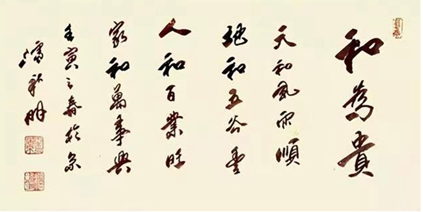 和為貴
天和風雨順
地和五谷豐
人和百業旺
家和萬事興
壬寅之春於京